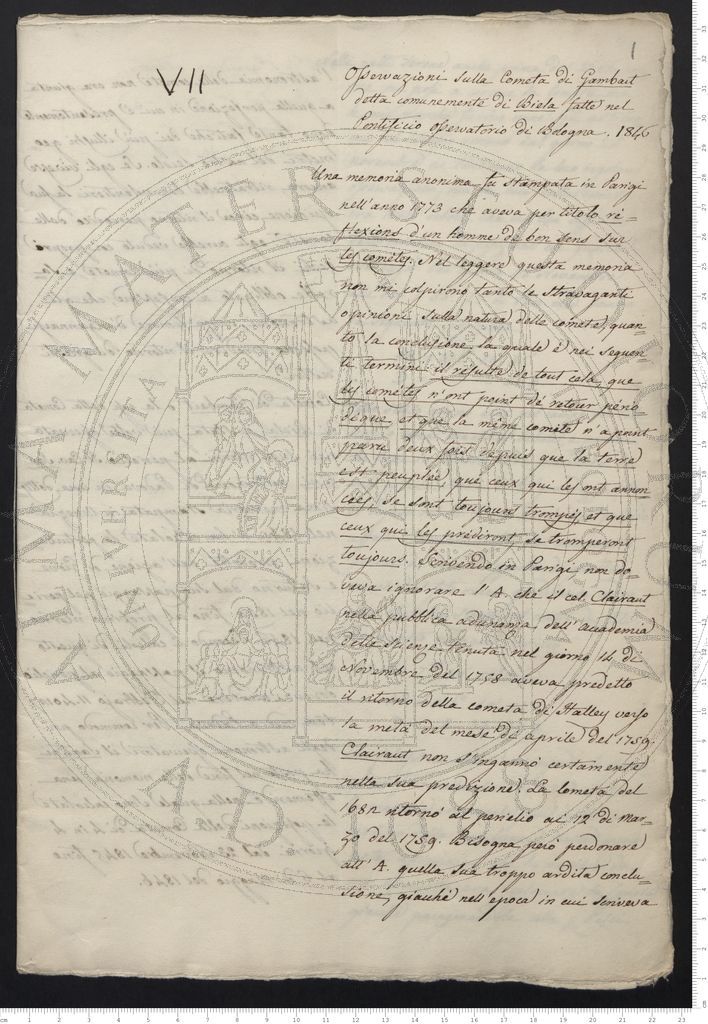 1
VII
Osservazioni sulla Cometa di Gambart
detta comunemente di Biela fatte nel
Pontificio Osservatorio di Bologna. 1846
Una memoria anonima fu stampata in Parigi
nell'anno 1773 che aveva per titolo ré=
flexions d'un homme de bon sens sur
les comètes. Nel leggere questa memoria
non mi colpirono tanto le stravaganti
opinioni sulla natura delle comete, quan=
to la conclusione la quale è nei seguen=
ti termini: il résulte de tout cela, que
les comètes n'ont point de retour pério=
dique, et que la même comète n'a point
paru deux fois depuis que la terre
est peuplée, que ceux qui les ont annon=
cées, se sont toujours trompés, et que
ceux qui les prédiront se tromperont
toujours. Scrivendo in Parigi, non do=
veva ignorare l'A. che il cel. Clairaut
nella pubblica adunanza dell'accademia
delle scienze tenuta nel giorno 14 di
Novembre del 1758 aveva predetto
il ritorno della cometa di Halley verso
la metà del mese di aprile del 1759.
Clairaut non s'ingannò certamente
nella sua predizione. La cometa del
1682 ritornò al perielio ai 12 di Mar=
zo del 1759. Bisogna però perdonare
all'A. quella sua troppo ardita conclu=
sione, giacché nell'epoca in cui scriveva
ALMA MATER STUDIORUM
UNIVERSITA
A.D. 1088